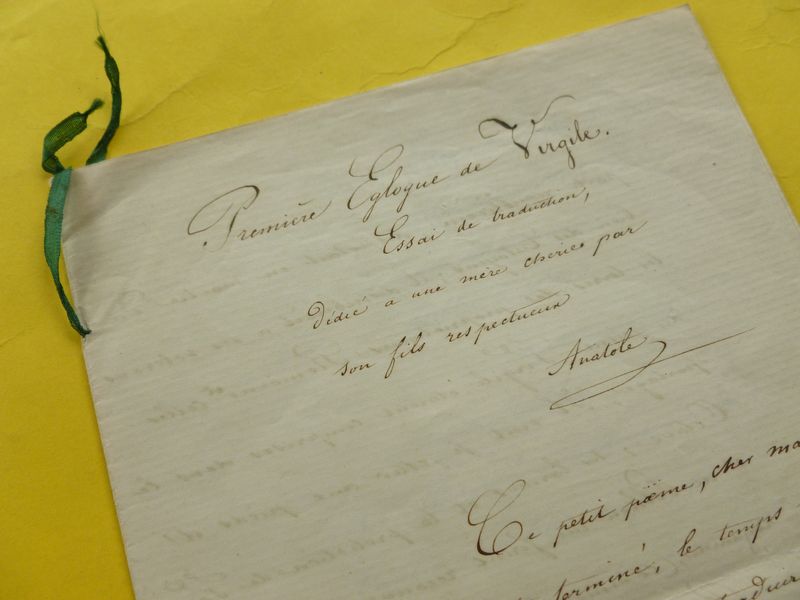 Première Eglogue de Virgile.
Essai de traduction,
Dédié a une mère cherie par
son fils respectueux
Anatole
Ce petit pöeme, cher
terminé, le temps